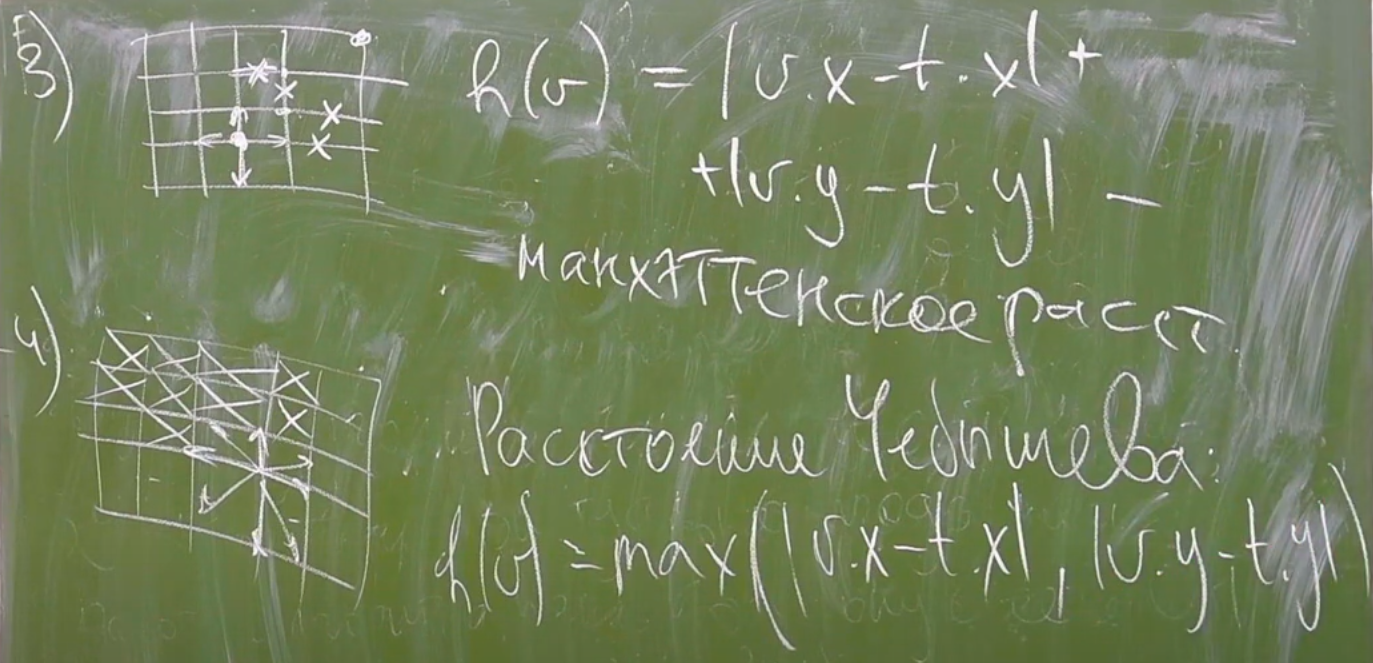 3) h(v) = |v.x - t.x| +
+ |v.y - t.y| -
манхэттенское расст.
4) Расстояние Чебышева:
h(v) = max(|v.x - t.x|, |v.y - t.y|)